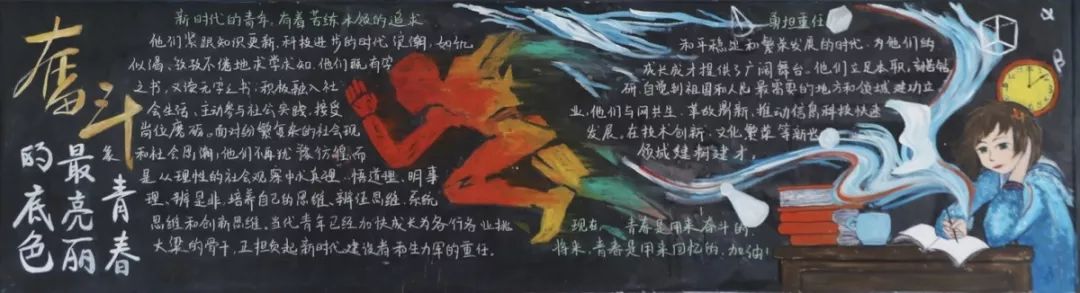 奋斗是
青春
最亮丽
的底色
新时代的青年，有着苦练本领的追求
他们紧跟知识更新、科技进步的时代浪潮，如饥
似渴、孜孜不倦地求学求知。他们既读有字
之书，又读无字之书，积极融入社
会生活，主动参与社会实践，接受
岗位磨砺。面对纷繁复杂的社会现
和社会思潮，他们不再犹豫彷徨，而
是从理性的社会观察中求真理、悟道理、明事
理、辨是非，培养自己的思维、辩证思维、系统
思维和创新思维。当代青年已经加快成长为各行各业挑
大梁的骨干，正担负起新时代建设者和生力军的重任。
勇担重任
和平稳定和繁荣发展的时代，为他们的
成长成才提供了广阔舞台。他们立足本职，刻苦钻
研，自觉到祖国和人民最需要的地方和领域建功立
业，他们与网共生，革故鼎新，推动信息科技快速
发展。在技术创新、文化繁荣等新兴
领域建树建才。
现在，青春是用来奋斗的，
将来，青春是用来回忆的，加油！